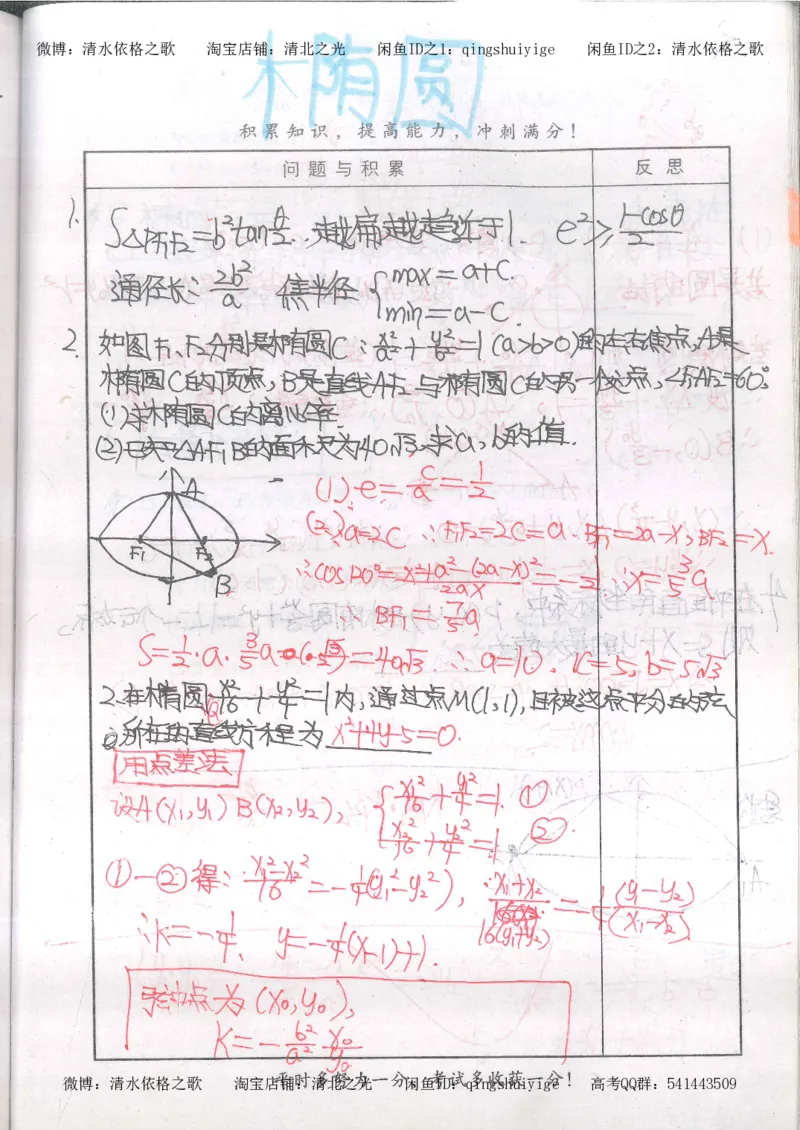 微博：清水依格之歌 淘宝店铺：清北之光 闲鱼ID之1：qingshuiyige 闲鱼ID之2：清水依格之歌
椭圆
积累知识，提高能力，冲刺满分！
问题与积累 反思
1. S△PF₁F₂=b²tanθ/2. 越扁越趋近于1. e²≥(1-cosθ)/2
通径长 2b²/a 焦半径 { max=a+c.
min=a-c.
2. 如图F₁、F₂分别是椭圆C：x²/a²+y²/b²=1(a>b>0)的左右焦点,A是
椭圆C的顶点，B是直线AF₂与椭圆C的另一个交点，∠F₁AF₂=60°
(1)求椭圆C的离心率.
(2)已知△AF₁B的面积为40√3.求a,b的值.
A
F₁ F₂
B
(1).e=c/a=1/2
(2)a=2c ∴F₁F₂=2c=a. BF₁=2a-x, BF₂=x.
∴cos120°=(x²+a²-(2a-x)²)/2ax=-1/2, ∴x=3/5a
∴BF₁=7/5a
S=1/2·a·8/5a·√3/2=40√3 ∴a=10. c=5, b=5√3
2.在椭圆x²/16+y²/4=1内,通过点M(1,1),且被这点平分的弦
所在的直线方程为 x+4y-5=0.
用点差法
设A(x₁,y₁) B(x₂,y₂),
{ x₁²/16+y₁²/4=1. ①
x₂²/16+y₂²/4=1 ②.
①-②得: (x₁²-x₂²)/16=-1/4(y₁²-y₂²), ∴(x₁+x₂)/16(y₁+y₂)=-1/4(y₁-y₂)/(x₁-x₂)
∴k=-1/4, y=-1/4(x-1)+1.
中点为(x₀,y₀),
K=-b²/a² x₀/y₀
平时多努力一分，考试多收获一分！
微博：清水依格之歌 淘宝店铺：清北之光 闲鱼ID：qingshuiyige 高考QQ群：541443509